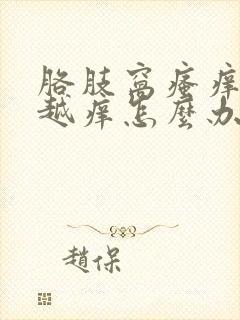 胳肢窝瘙痒
越痒怎麽办
趙保